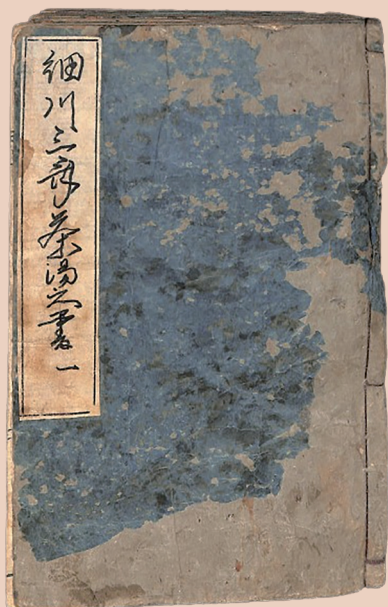 細川三斎茶湯之書 一